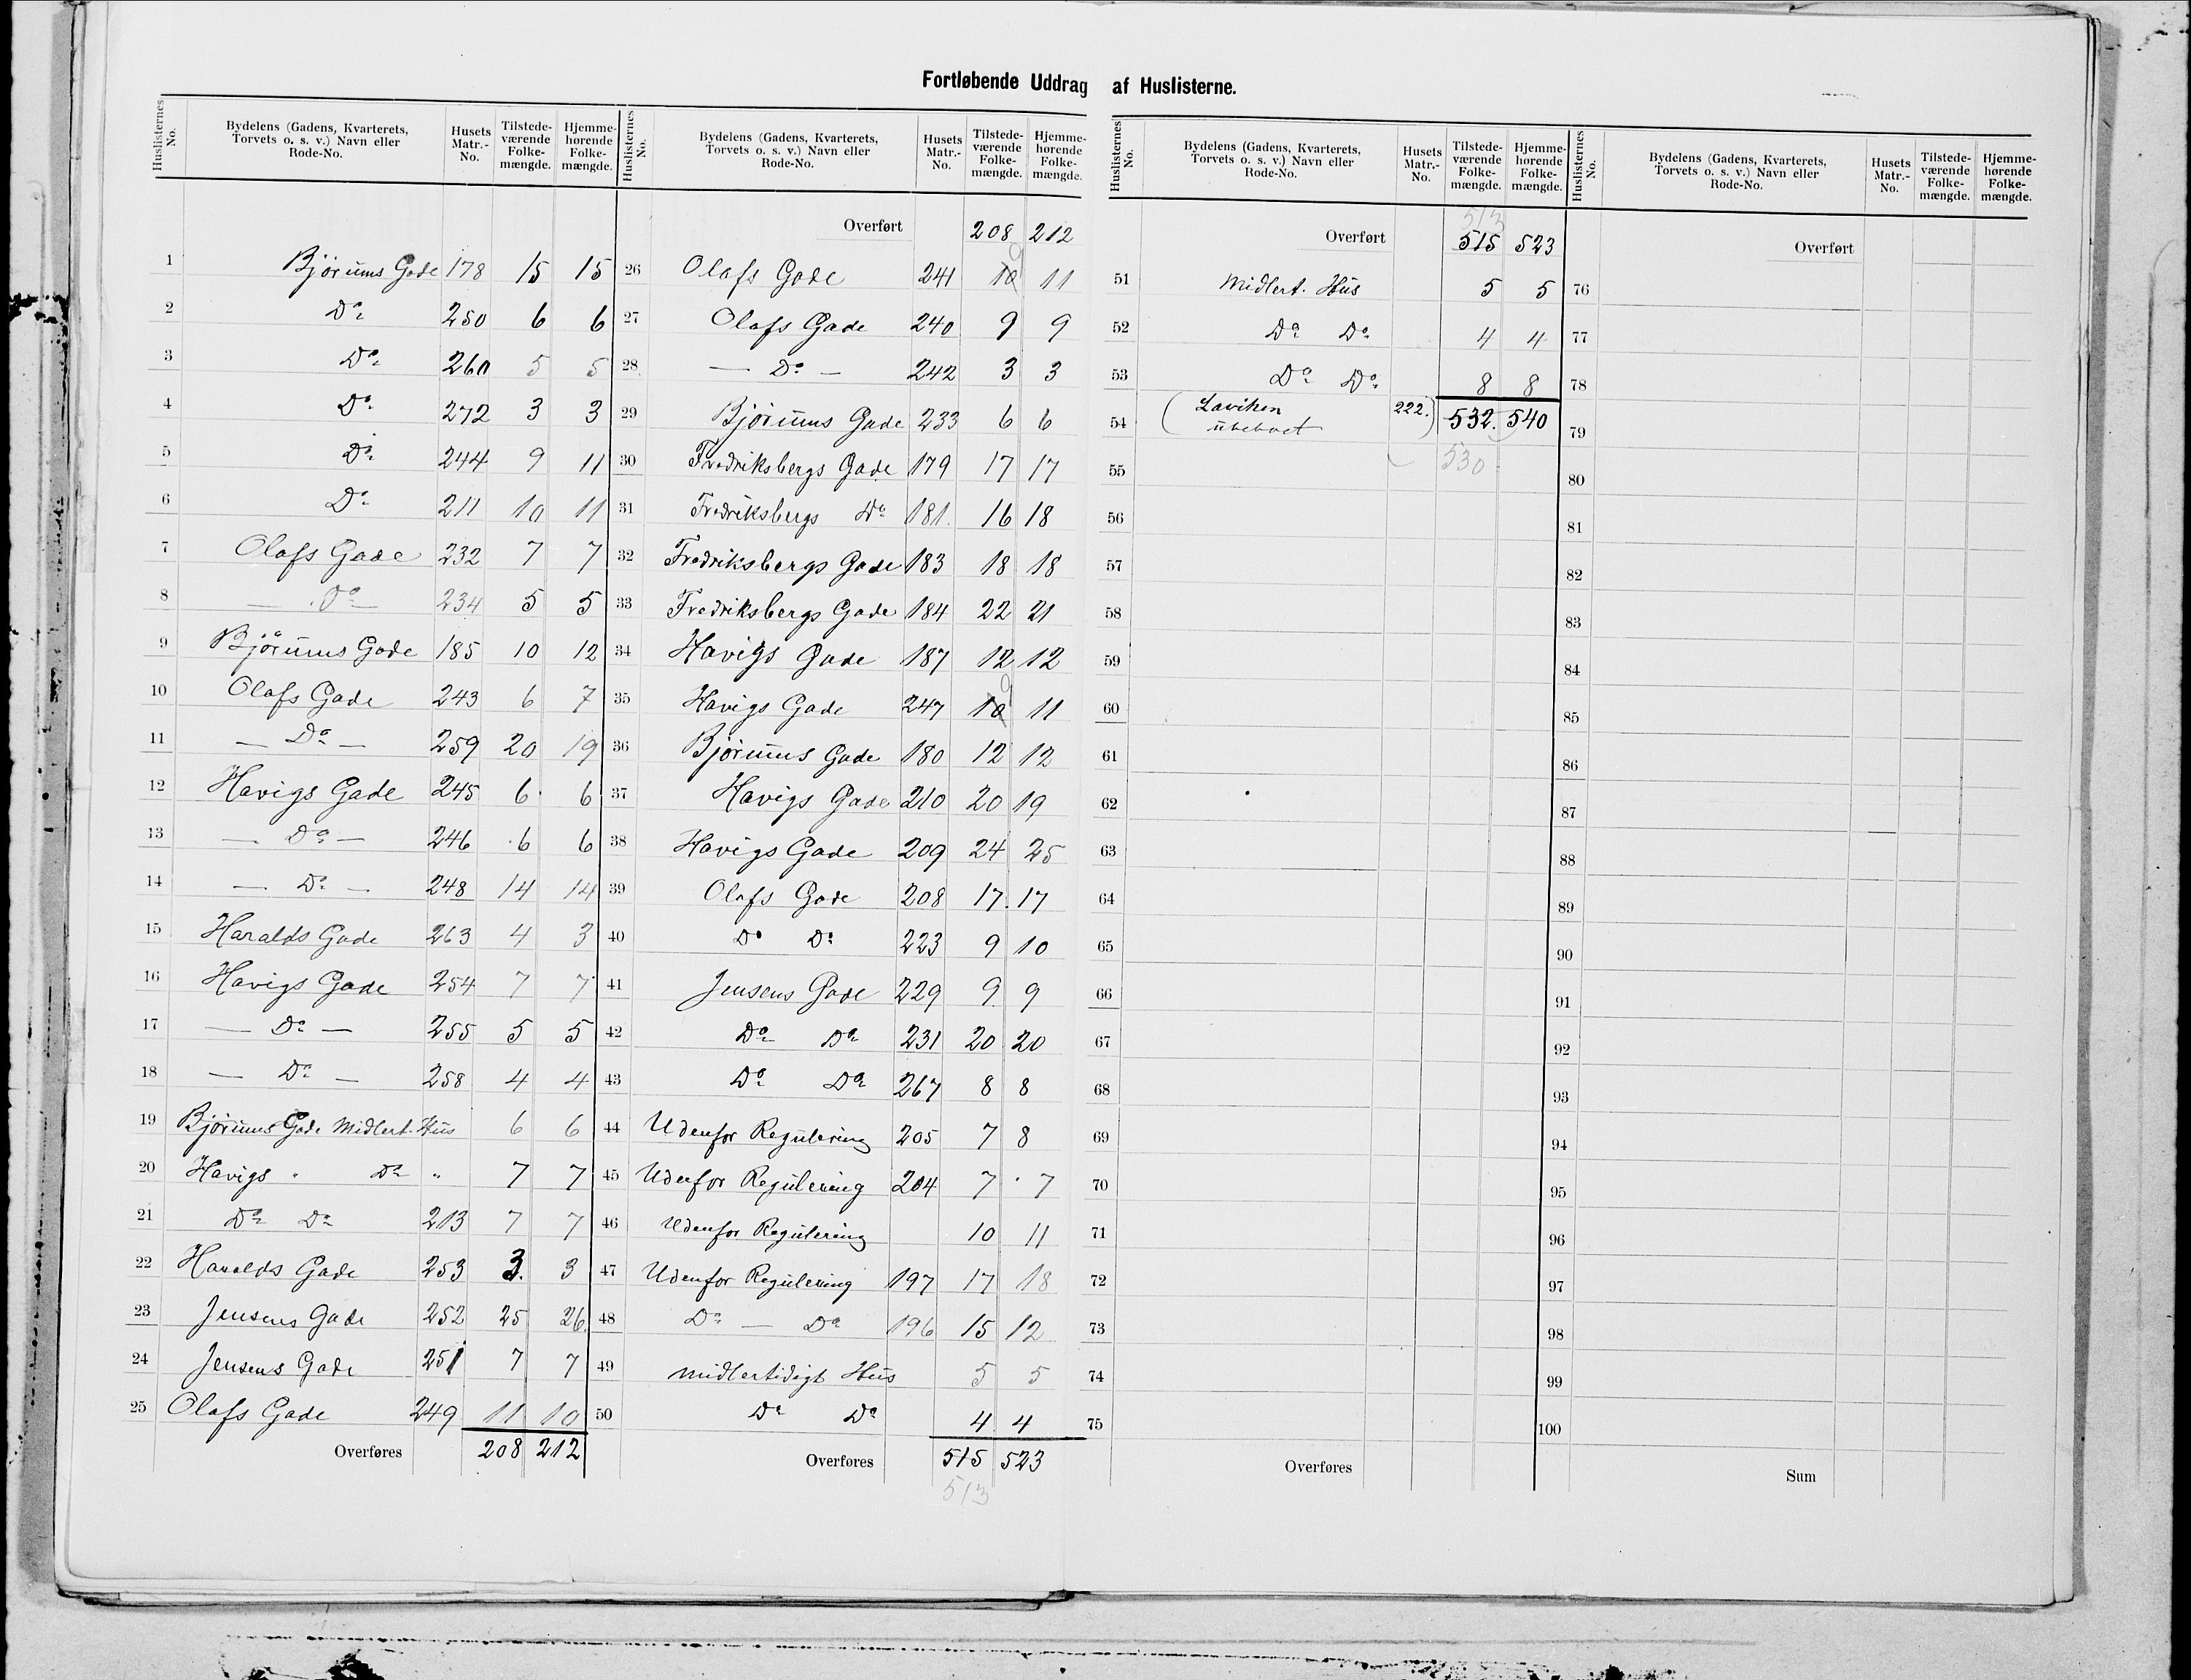 Fortløbende Uddrag af Huslisterne.
Huslisternes No. Bydelens (Gadens, Kvarterets, Torvets o. s. v.) Navn eller Rode-No. Husets Matr.-No. Tilstedeværende Folkemængde. Hjemmehørende Folkemængde.
1 Bjørums Gade 178 15 15
2 Do 250 6 6
3 Do 260 5 5
4 Do 272 3 3
5 Do 244 9 11
6 Do 211 10 11
7 Olafs Gade 232 7 7
8 — Do — 234 5 5
9 Bjørums Gade 185 10 12
10 Olafs Gade 243 6 7
11 — Do — 259 20 19
12 Havigs Gade 245 6 6
13 — Do — 246 6 6
14 — Do — 248 14 14
15 Haralds Gade 263 4 3
16 Havigs Gade 254 7 7
17 — Do — 255 5 5
18 — Do — 258 4 4
19 Bjørums Gade Midlert. Hus 6 6
20 Havigs " Do " 7 7
21 Do Do 213 7 7
22 Haralds Gade 253 3. 3
23 Jensens Gade 252 25 26
24 Jensens Gade 251 7 7
25 Olafs Gade 249 11 10
Overføres 208 212
Huslisternes No. Bydelens (Gadens, Kvarterets, Torvets o. s. v.) Navn eller Rode-No. Husets Matr.-No. Tilstedeværende Folkemængde. Hjemmehørende Folkemængde.
Overført 208 212
26 Olafs Gade 241 10 9 11
27 Olafs Gade 240 9 9
28 — Do — 242 3 3
29 Bjørums Gade 233 6 6
30 Fredriksbergs Gade 179 17 17
31 Fredriksbergs Do 181. 16 18
32 Fredriksbergs Gade 183 18 18
33 Fredriksbergs Gade 184 22 21
34 Havigs Gade 187 12 12
35 Havigs Gade 247 10 9 11
36 Bjørums Gade 180 12 12
37 Havigs Gade 210 20 19
38 Havigs Gade 209 24 25
39 Olafs Gade 208 17. 17
40 Do Do 223 9 10
41 Jensens Gade 229 9 9
42 Do Do 231 20 20
43 Do Do 267 8 8
44 Udenfor Regulering 205 7 8
45 Udenfor Regulering 204 7 7
46 Udenfor Regulering 10 11
47 Udenfor Regulering 197 17 18
48 Do — Do 196 15 12
49 midlertidigt Hus 5 5
50 Do Do 4 4
Overføres 515 523
513
Huslisternes No. Bydelens (Gadens, Kvarterets, Torvets o. s. v.) Navn eller Rode-No. Husets Matr.-No. Tilstedeværende Folkemængde. Hjemmehørende Folkemængde.
513
Overført 515 523
51 Midlert. Hus 5 5
52 Do Do 4 4
53 Do Do 8 8
54 (Laviken ubeboet 222.) 532. 540
55 530
56
57
58
59
60
61
62
63
64
65
66
67
68
69
70
71
72
73
74
75
Overføres
Huslisternes No. Bydelens (Gadens, Kvarterets, Torvets o. s. v.) Navn eller Rode-No. Husets Matr.-No. Tilstedeværende Folkemængde. Hjemmehørende Folkemængde.
Overført
76
77
78
79
80
81
82
83
84
85
86
87
88
89
90
91
92
93
94
95
96
97
98
99
100
Sum